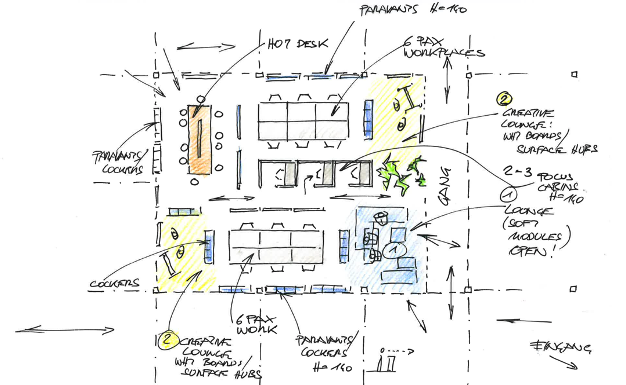 PARAVANTS H=140
HOT DESK
6 PAX
WORKPLACES
2
CREATIVE
LOUNGE:
WHT BOARDS/
SURFACE HUBS
PARAVANTS/
COCKERS
2-3 FOCUS
CABINS
H=140
GANG
1
LOUNGE
(SOFT
MODULES)
OPEN!
1
COCKERS
2
CREATIVE
LOUNGE
WHT BOARDS/
SURFACE HUBS
6 PAX
WORK
PARAVANTS/
COCKERS
H=140
EINGANG